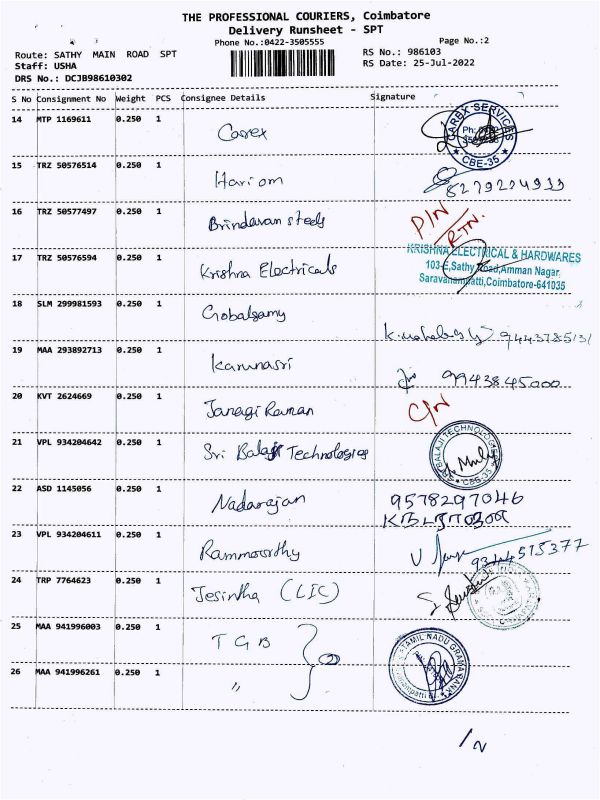 THE PROFESSIONAL COURIERS, Coimbatore
Delivery Runsheet - SPT
Phone No.:0422-3505555 Page No.:2
Route: SATHY MAIN ROAD SPT RS No.: 986103
Staff: USHA RS Date: 25-Jul-2022
DRS No.: DCJB98610302
S No Consignment No Weight PCS Consignee Details Signature
14 MTP 1169611 0.250 1 Carex CAREX SERVICES CBE-35
15 TRZ 50576514 0.250 1 Hari om 8279224933
16 TRZ 50577497 0.250 1 Brindavan steels D/N / RTN.
17 TRZ 50576594 0.250 1 Krishna Electricals KRISHNA ELECTRICAL & HARDWARES
103-E,Sathy Road,Amman Nagar,
Saravanampatti,Coimbatore-641035
18 SLM 299981593 0.250 1 Gobalsamy 9443785131
19 MAA 293892713 0.250 1 Karunasri 9943845000
20 KVT 2624669 0.250 1 Janagi Raman C/N
21 VPL 934204642 0.250 1 Sri Balaji Technologies SRI BALAJI TECHNOLOGIES CBE-35
22 ASD 1145056 0.250 1 Nadarajan 9578297046
23 VPL 934204611 0.250 1 Rammoorthy 9344515377
24 TRP 7764623 0.250 1 Jesintha (LIC)
25 MAA 941996003 0.250 1 T G B (2) TAMIL NADU GRAMA BANK
26 MAA 941996261 0.250 1 "
/N